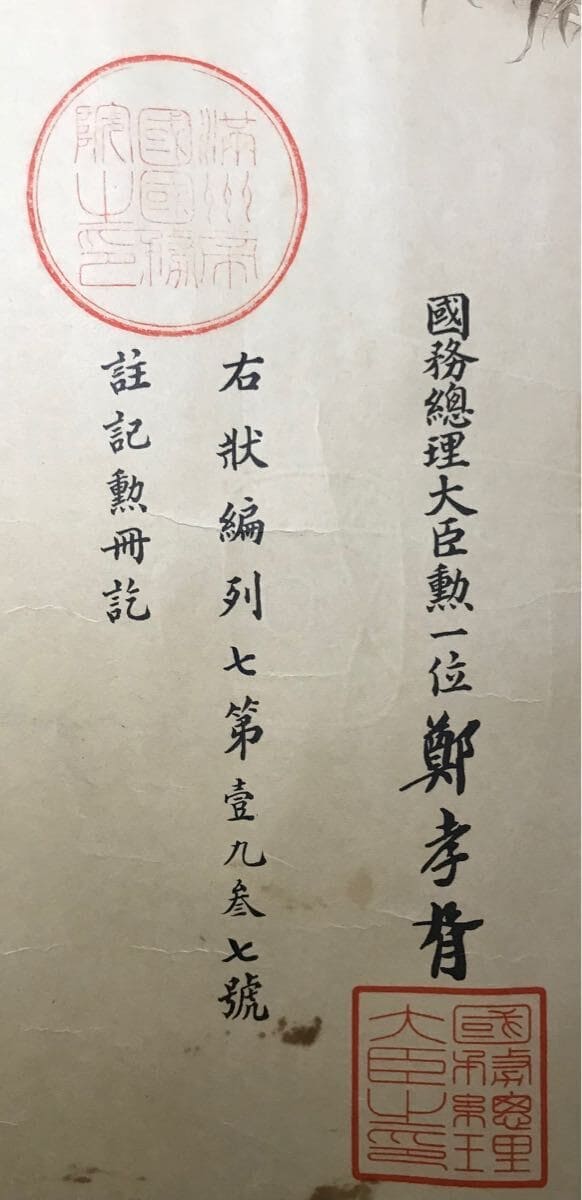 國務總理大臣勲一位鄭孝胥
國務總理大臣之印
右狀編列七第壹九叁七號
註記勲冊訖
滿洲帝國國務院之印